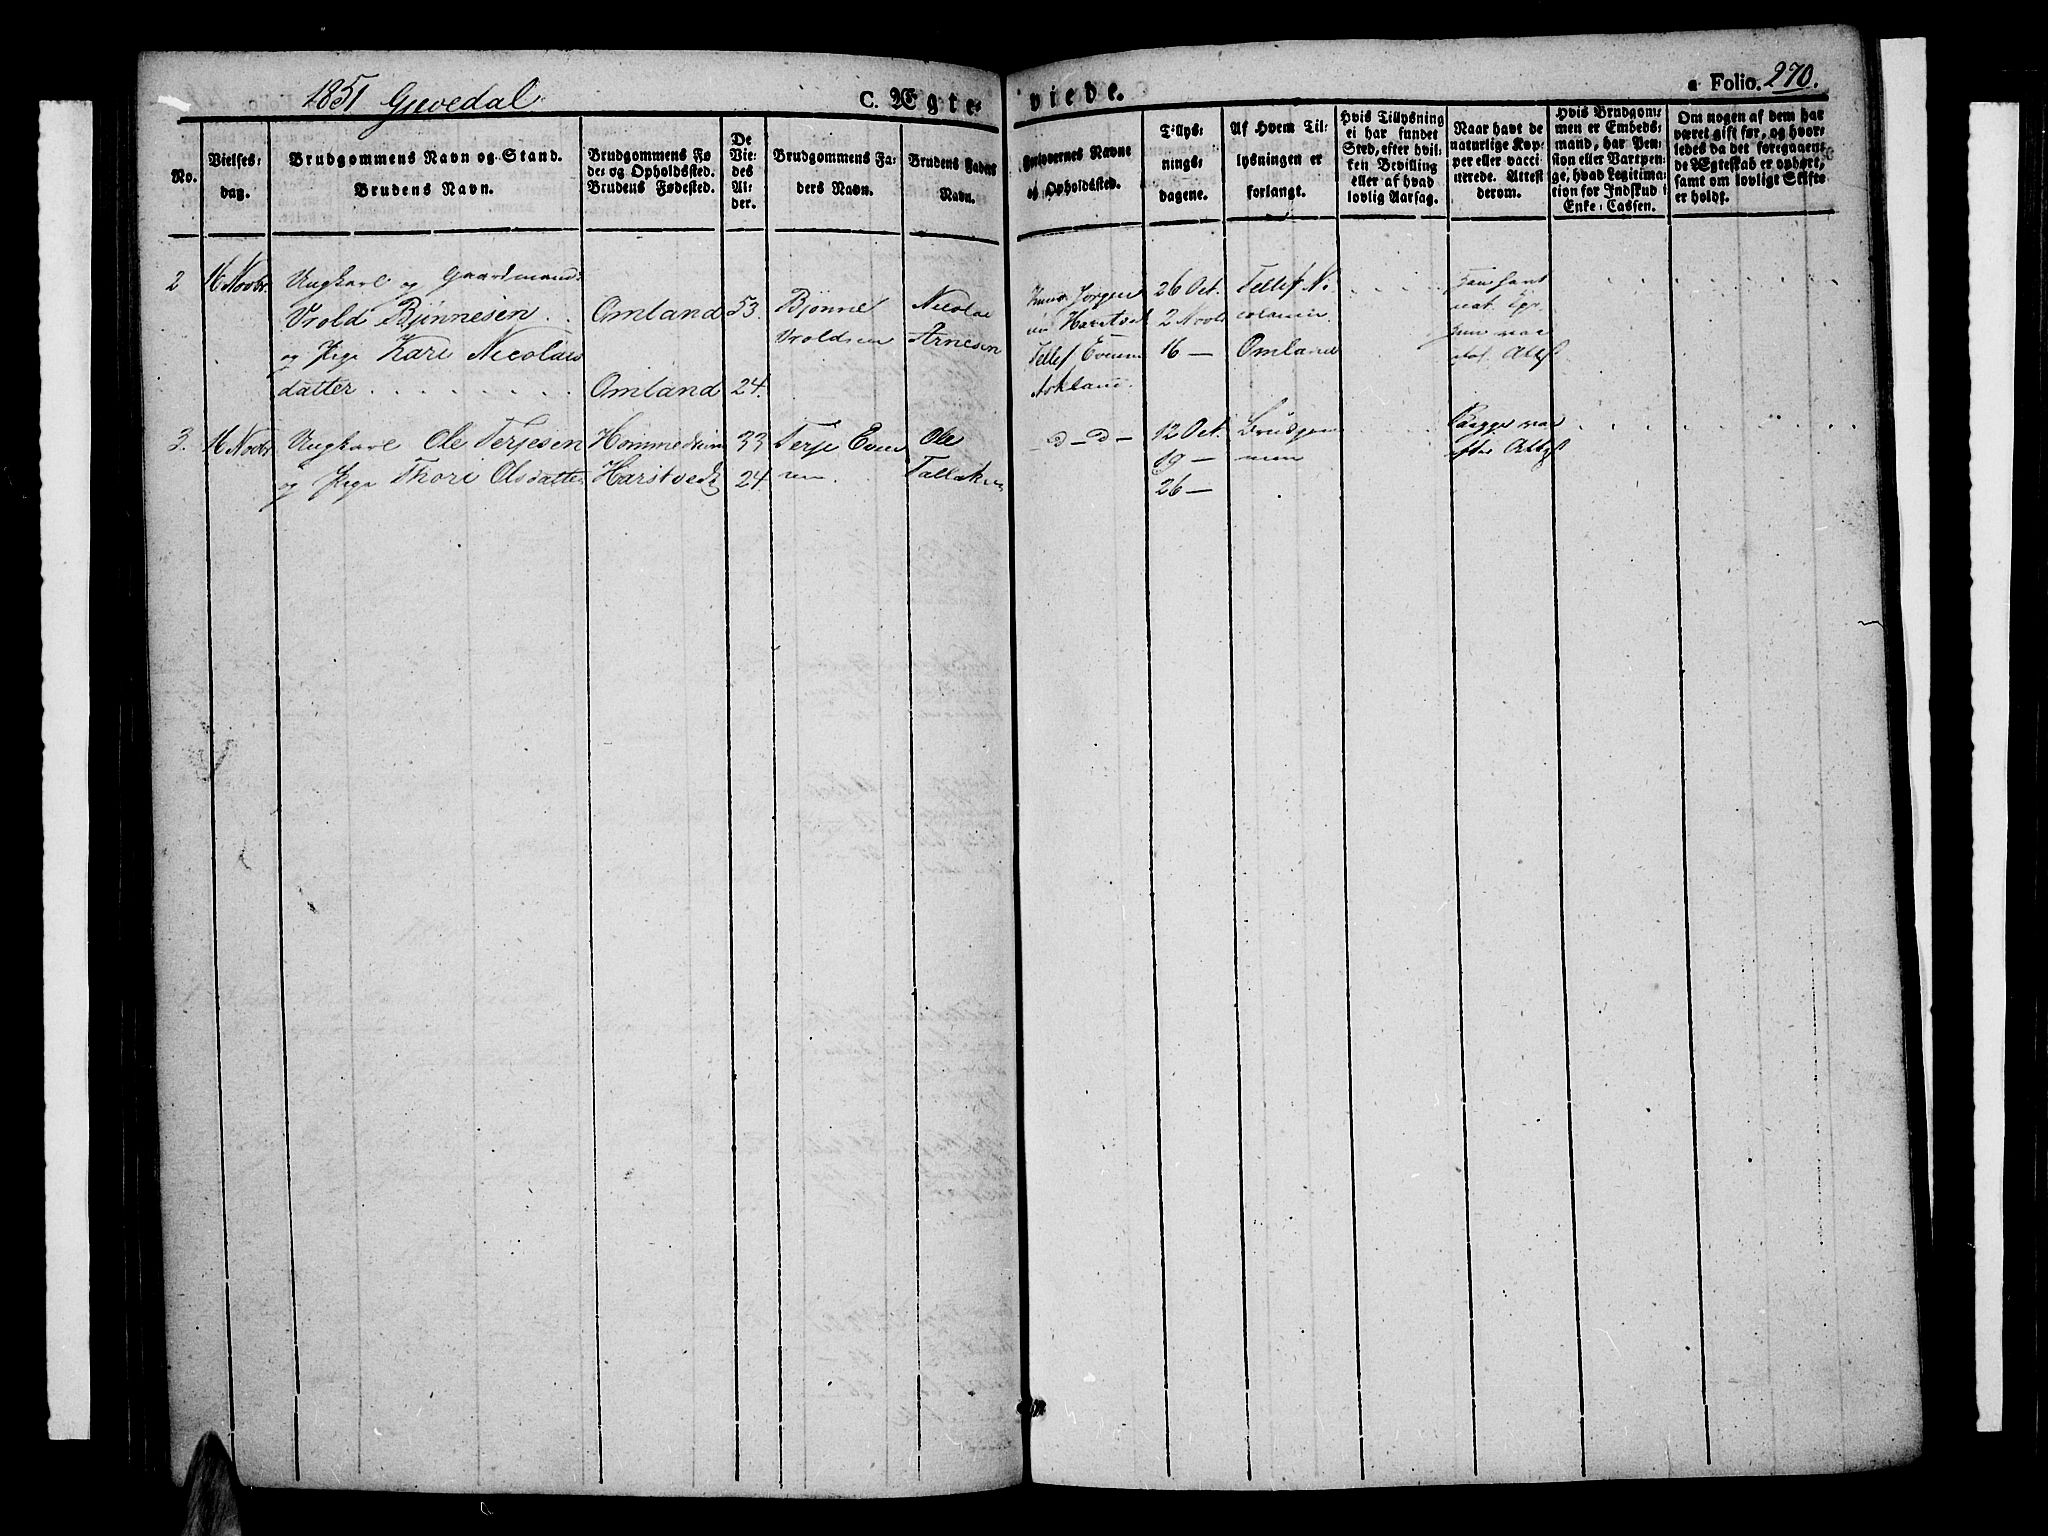 1851 Gjevedal
C. Ægte-
viede.
Folio. 270.
No.
Vielses-
dag.
Brudgommens Navn og Stand.
Brudens Navn.
Brudgommens Fø
des og Opholdssted.
Brudens Fødested.
De
Vie-
des
Al-
der.
Brudgommens Fa-
ders Navn.
Brudens Faders
Navn.
Forlovernes Navne
og Opholdssted.
Tillys-
nings-
dagene.
Af Hvem Til-
lysningen er
forlangt.
Hvis Tillysning
ei har fundet
Sted, efter hvil-
ken Bevilling
eller af hvad
lovlig Aarsag.
Naar havt de
naturlige Kop-
per eller vacci-
nerede. Attest
derom.
Hvis Brudgom-
men er Embeds-
mand, har Pen-
sion eller Vartpen-
ge, hvad Legitima-
tion for Indskud i
Enke-Cassen.
Om nogen af dem har
været gift før, og hvor-
ledes da det foregaaen-
de Ægteskab er ophørt,
samt om lovligt Skifte
er holdt.
2
16 Novbr.
Ungkarl og Gaardmand
Vrold Bjønnesen
og Pige Kari Nicolais
datter
Omland
Omland
53.
24.
Bjønne
Vroldsen
Nicolai
Arnesen
Knud Jørgen
Tellef Even
26 Oct.
2 Novbr
16 —
Tellef Ni
colaisen
Omland
nat. Kpr.
Attest
3.
16 Novbr
Ungkarl Ole Terjesen
og Pige Thore Olsdatter
Harstvedt
33
24.
Terje Even
sen.
Ole
Tallaksen
— d — d —
12 Oct.
19 —
26 —
Brudgom
men
Begge vac
efter Attest